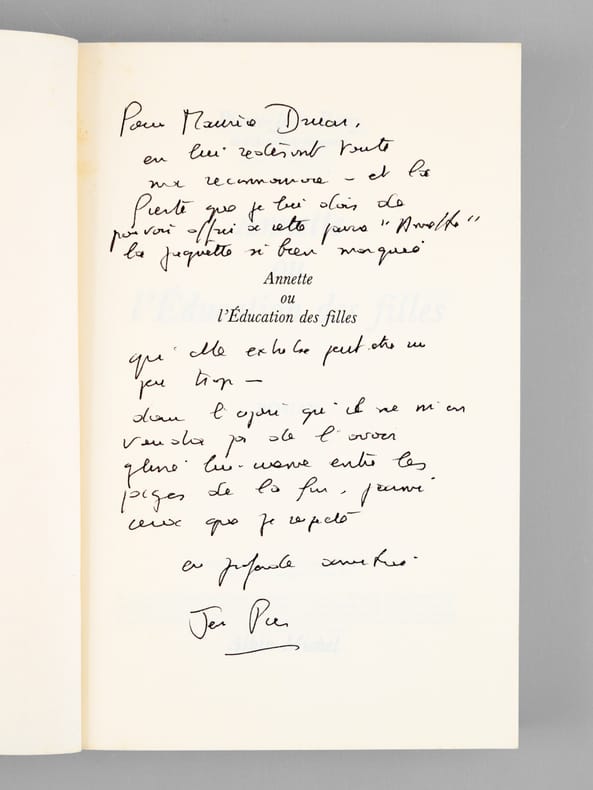 Pour Maurice Druon,
en lui redisant toute
ma reconnaissance – et la
fierté que je lui dois de
pouvoir offrir à cette jeune "Annette"
la jaquette si bien marquée
Annette
ou
l'Éducation des filles
qu'elle exhibe peut-être un
peu trop –
dans l'espoir qu'il ne m'en
voudra pas de l'avoir
glissé lui-même entre les
pages de la fin, parmi
ceux que je respecte
en profonde amitié
Jean